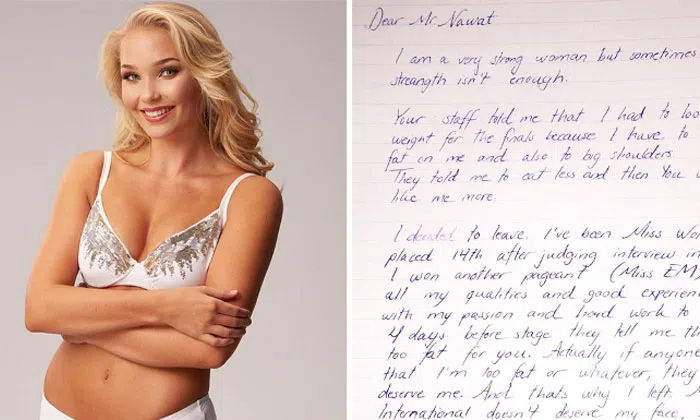 Dear Mr Nawat
I am a very strong woman but sometimes
streangth isn't enough.
Your staff told me that I had to loo
weight for the finals because I have to
fat on me and also to big shoulders.
They told me to eat less and then You w
like me more.
I decided to leave. I've been Miss Wor
placed 14th after judging interview in
I won another pageant (Miss EM)
all my qualities and good experien
with my passion and hard work to
4 days before stage they tell me th
too fat for you. Actually if anyone
that I'm too fat or whatever, they
deserve me. And thats why I left.
International doesn't deserve my face,